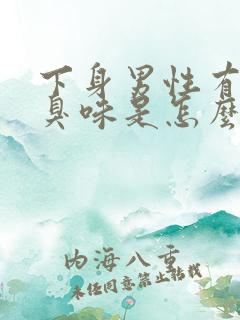 下身男性有
臭味是怎麼
内海八重
未经同意禁止转载